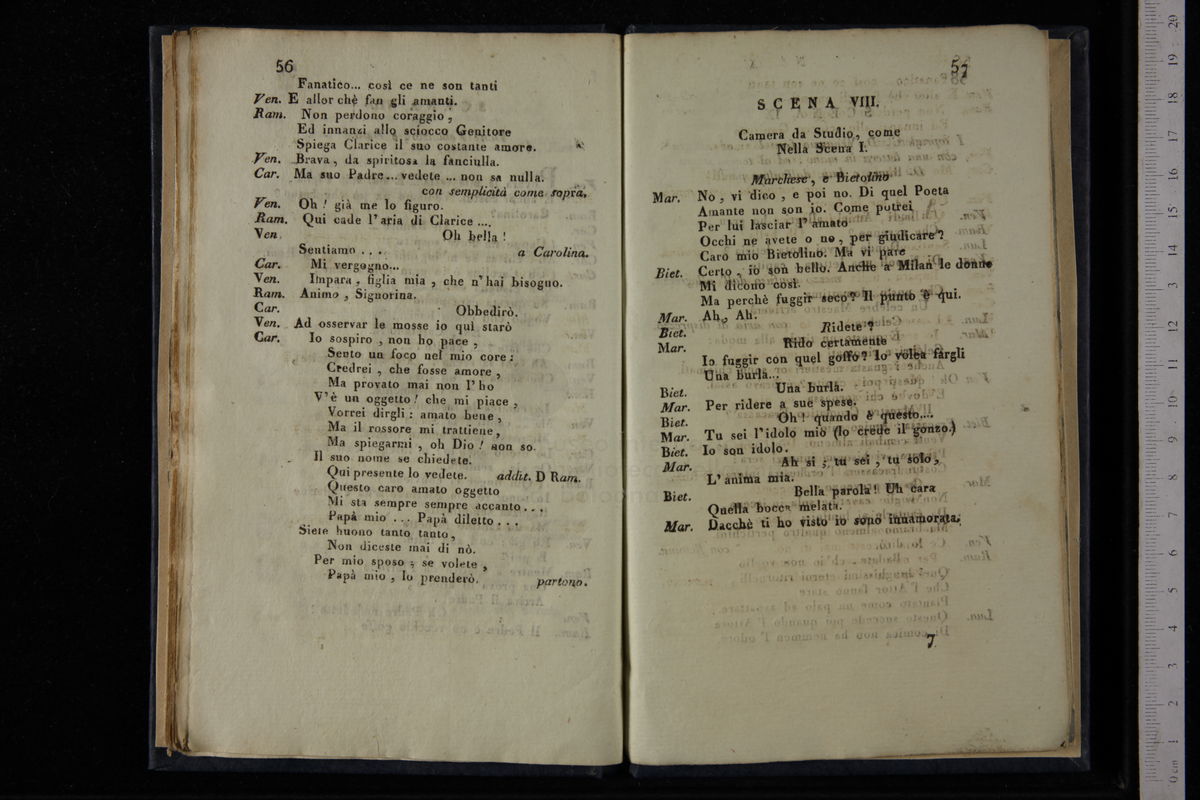 56
Fanatico... così ce ne son tanti
Ven. E allor chè fan gli amanti.
Ram. Non perdono coraggio,
Ed innanzi allo sciocco Genitore
Spiega Clarice il suo costante amore.
Ven. Brava, da spiritosa la fanciulla.
Car. Ma suo Padre... vedete ... non sa nulla.
con semplicità come sopra.
Ven. Oh! già me lo figuro.
Ram. Qui cade l'aria di Clarice ...,
Ven. Oh bella!
Sentiamo ... a Carolina.
Car. Mi vergogno...
Ven. Impara, figlia mia, che n'hai bisogno.
Ram. Animo, Signorina.
Car. Obbedirò.
Ven. Ad osservar le mosse io quì starò
Car. Io sospiro, non ho pace,
Sento un foco nel mio core:
Credrei, che fosse amore,
Ma provato mai non l'ho
V'è un oggetto! che mi piace,
Vorrei dirgli: amato bene,
Ma il rossore mi trattiene,
Ma spiegarmi, oh Dio! non so.
Il suo nome se chiedete.
Qui presente lo vedete. addit. D Ram.
Questo caro amato oggetto
Mi sta sempre sempre accanto...
Papà mio ... Papà diletto...
Siete buono tanto tanto,
Non diceste mai di nò.
Per mio sposo, se volete,
Papà mio, lo prenderò. partono.
57
SCENA VIII.
Camera da Studio, come
Nella Scena I.
Marchese, e Bietolino
Mar. No, vi dico, e poi no. Di quel Poeta
Amante non son io. Come potrei
Per lui lasciar l'amato
Occhi ne avete o no, per giudicare?
Caro mio Bietolino. Ma vi pare
Biet. Certo, io son bello. Anche a Milan le donne
Mi dicono così.
Ma perchè fuggir seco? Il punto è qui.
Mar. Ah, Ah.
Biet. Ridete?
Mar. Rido certamente
Io fuggir con quel goffo? Io volea fargli
Una burla...
Biet. Una burla.
Mar. Per ridere a sue spese.
Biet. Oh! quando è questo....
Mar. Tu sei l'idolo mio (lo crede il gonzo.)
Biet. Io son idolo.
Mar. Ah si, tu sei, tu solo,
L'anima mia.
Biet. Bella parola! Uh cara
Quella bocca melata.
Mar. Dacchè ti ho visto io sono innamorata.
7